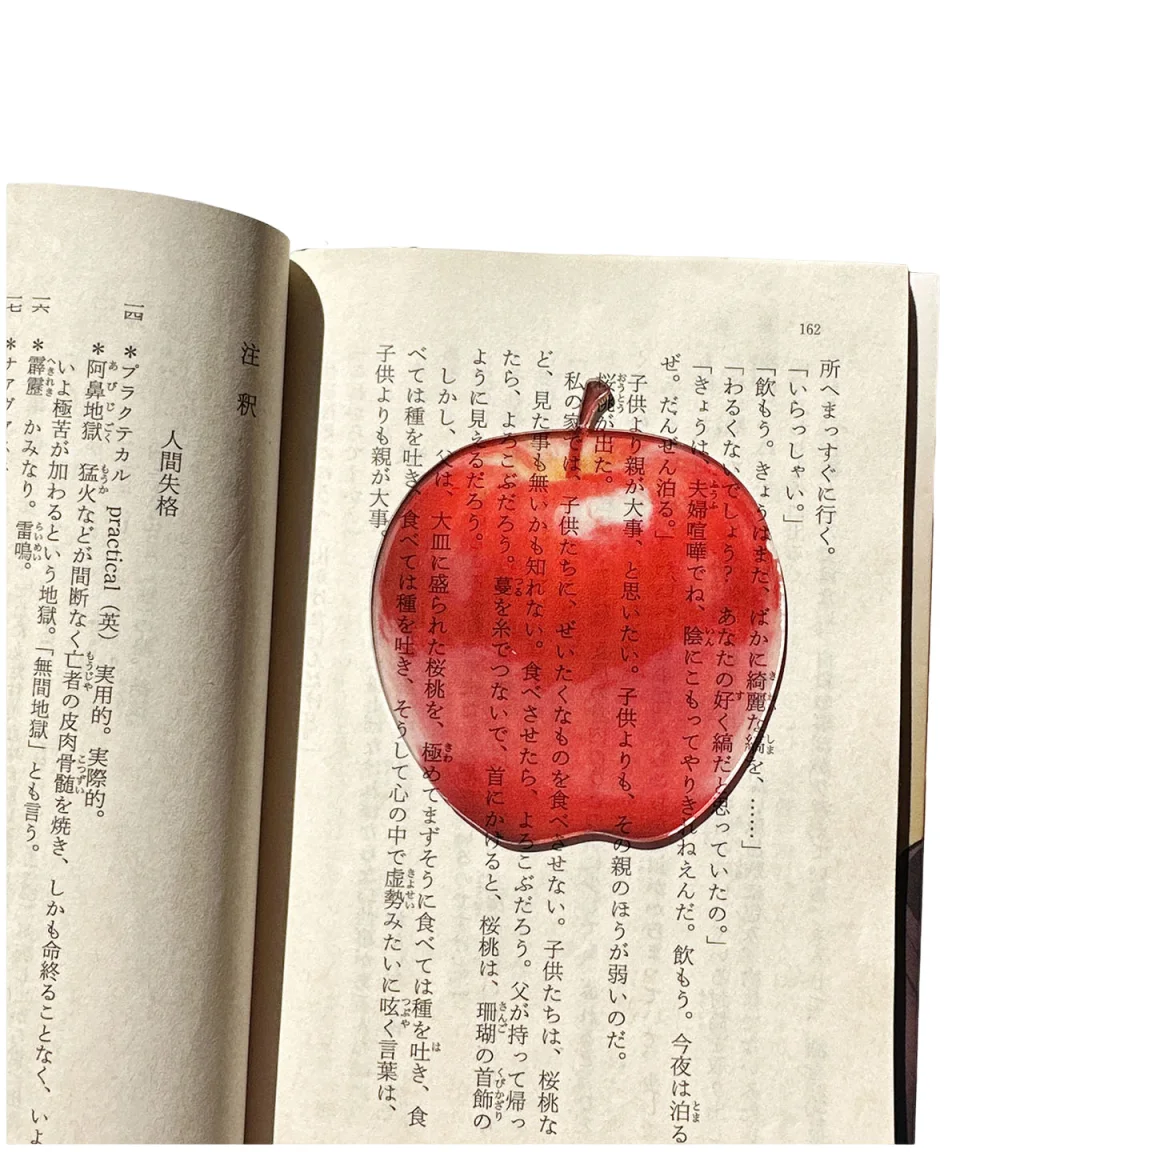 162
所へまっすぐに行く。
「いらっしゃい。」
「飲もう。きょうはまた、ばかに綺麗な縞を、……」
「わるくないでしょう? あなたの好く縞だと思っていたの。」
「きょうは、夫婦喧嘩でね、陰にこもってやりきれねえんだ。飲もう。今夜は泊る
ぜ。だんぜん泊る。」
子供より親が大事、と思いたい。子供よりも、その親のほうが弱いのだ。
桜桃が出た。
私の家では、子供たちに、ぜいたくなものを食べさせない。子供たちは、桜桃な
ど、見た事も無いかも知れない。食べさせたら、よろこぶだろう。父が持って帰っ
たら、よろこぶだろう。蔓を糸でつないで、首にかけると、桜桃は、珊瑚の首飾の
ように見えるだろう。
しかし、父は、大皿に盛られた桜桃を、極めてまずそうに食べては種を吐き、食
べては種を吐き、食べては種を吐き、そうして心の中で虚勢みたいに呟く言葉は、
子供よりも親が大事。
注釈
人間失格
一四 *プラクテカル practical(英) 実用的。実際的。
*阿鼻地獄 猛火などが間断なく亡者の皮肉骨髄を焼き、しかも命終ることなく、いよ
いよ極苦が加わるという地獄。「無間地獄」とも言う。
一六 *霹靂 かみなり。雷鳴。
一七